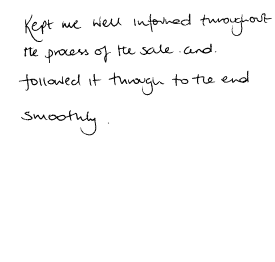 Kept me well informed throughout
the process of the sale and
followed it through to the end
smoothly.